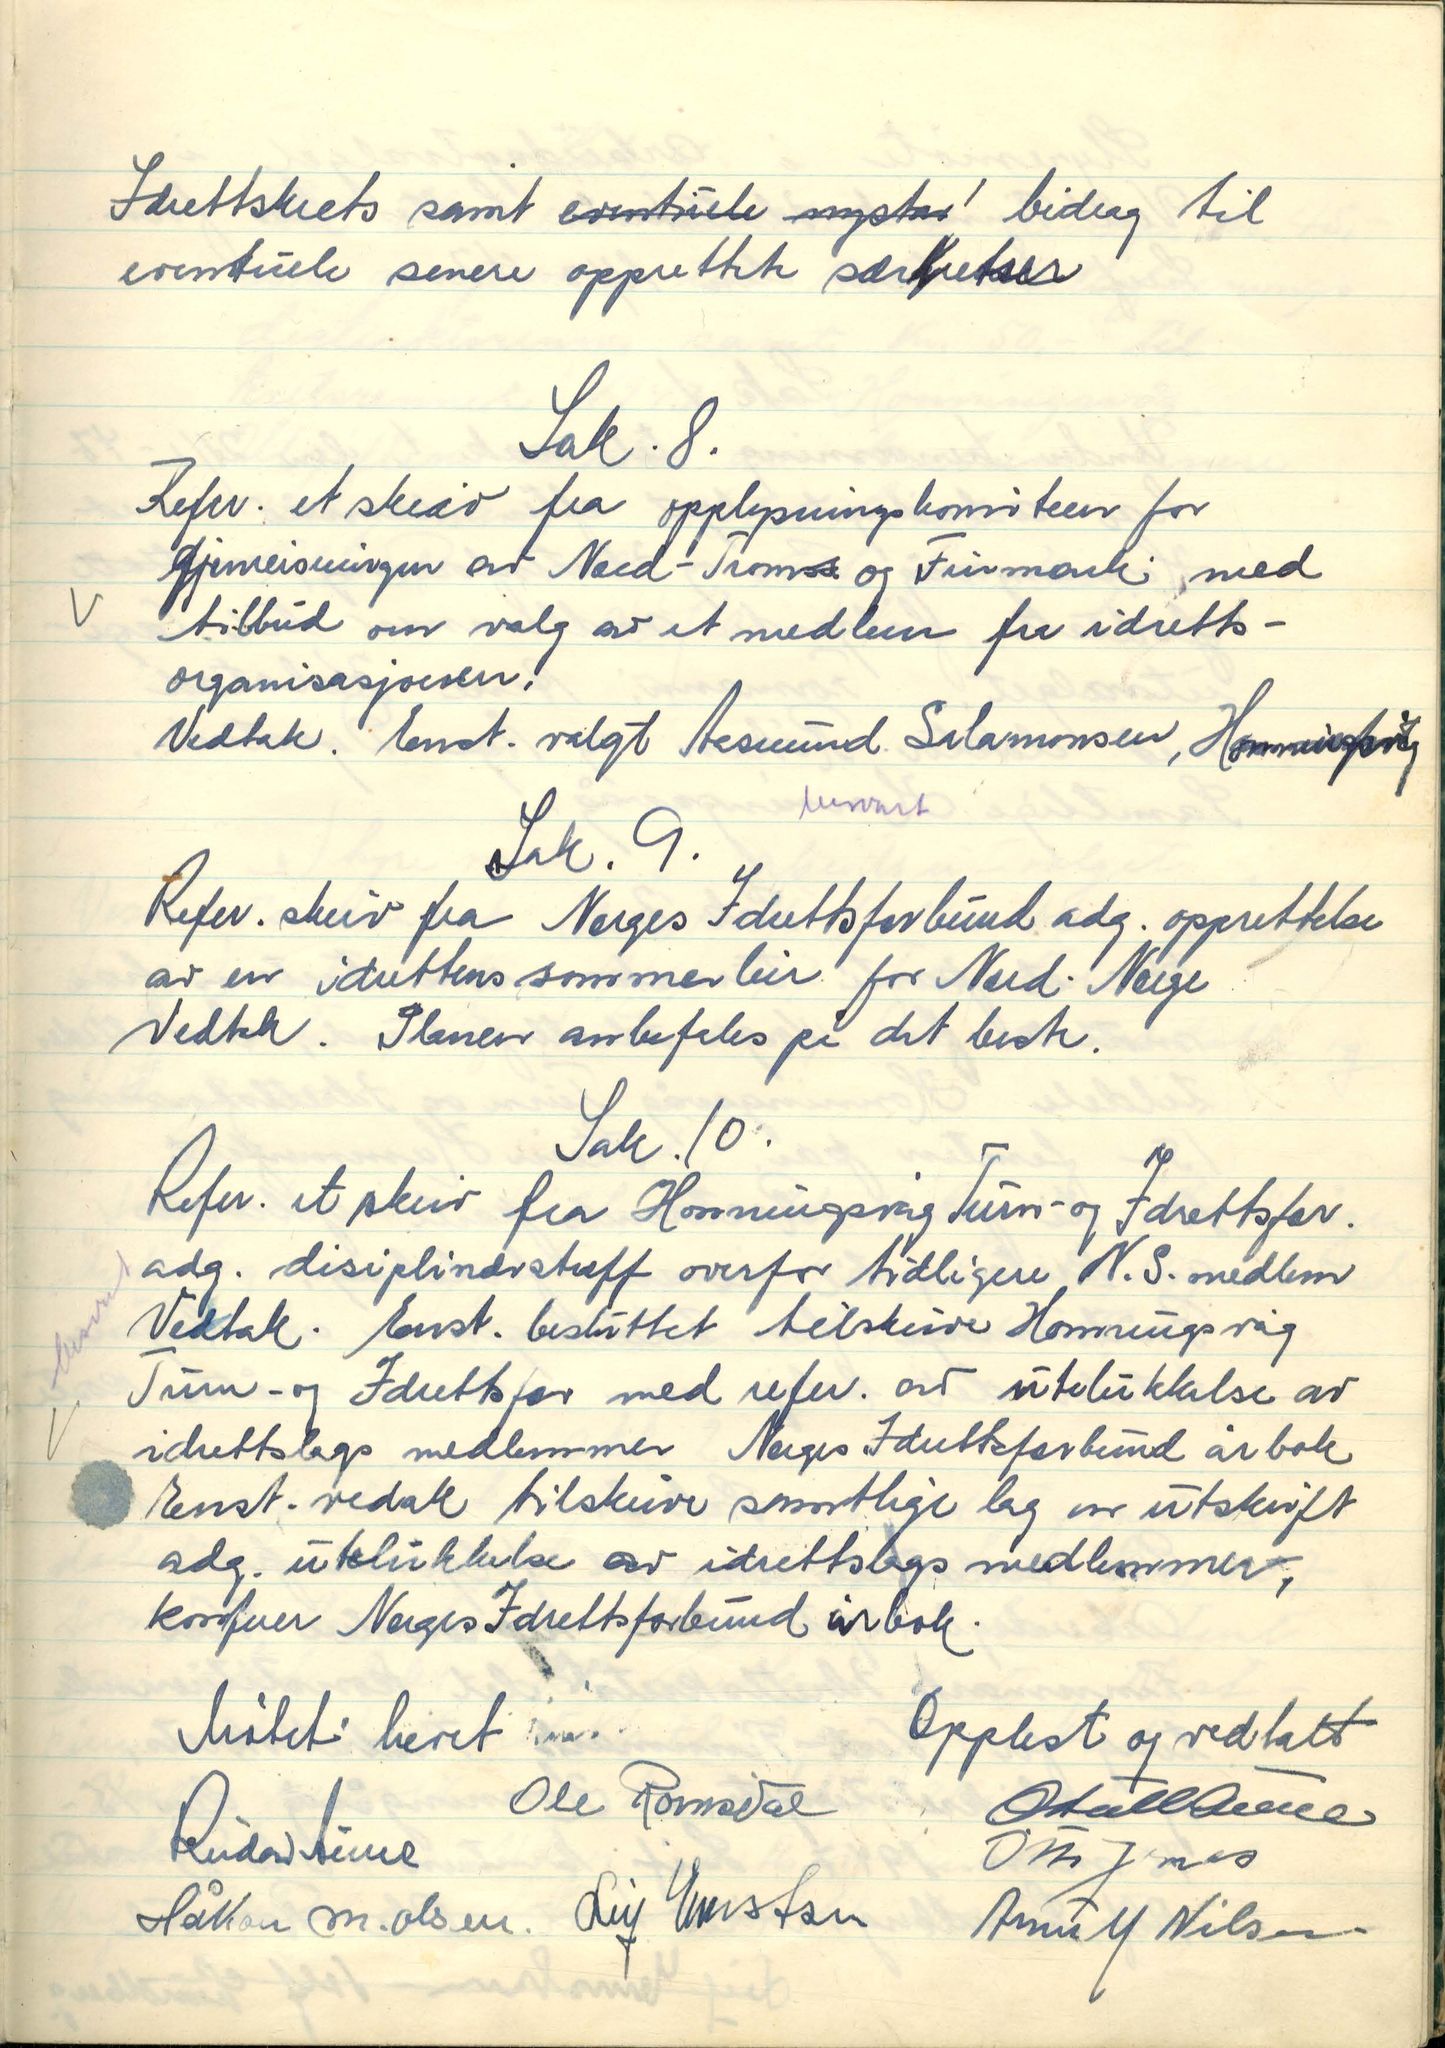 Idrettskrets samt eventuele bidrag til
eventuele senere opprettete særkretser
Sak. 8.
Refer. et skriv fra opplysningskomiteen for
gjenreisningen av Nord-Troms og Finmark, med
tilbud om valg av et medlem fra idretts-
organisasjonen.
Vedtak. Enst. valgt Aasmund Salamonsen, Honningsvåg
besvart
Sak. 9.
Refer. skriv fra Norges Idrettsforbund adg. opprettelse
av en idrettens sommerleir for Nord-Norge
Vedtak. Planen anbefales på det beste.
Sak. 10.
Refer. et skriv fra Honningsvåg Turn- og Idrettsfor.
adg. disiplinærstraff overfor tidligere N.S. medlem
besvart
Vedtak. Enst. besluttet tilskrive Honningsvåg
Turn- og Idrettsfor med refer. av utelukkelse av
idrettslags medlemmer Norges Idrettsforbund årbok
Enst. vedak tilskrive samtlige lag en utskrift
adg. utelukkelse av idrettslags medlemmer,
konfrer Norges Idrettsforbund årbok.
Møtet hevet
Opplest og vedtatt
Ole Romsdal
Reidar Aune
Otto Jenes
Håkon M. Olsen. Leif Ernstsen Arnulf Nilsen